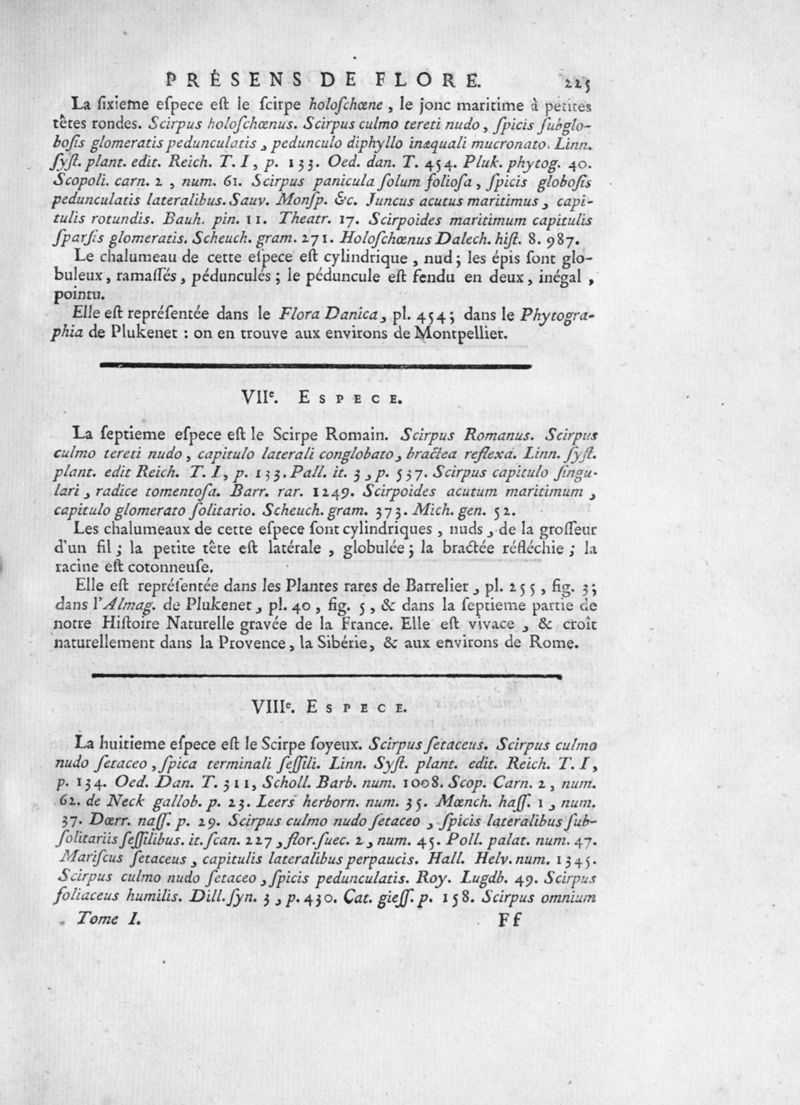 PRÉSENS DE FLORE. 225
La ſixieme eſpece eſt le ſcirpe holoſchœne, le jonc maritime à petites
têtes rondes. Scirpus holoſchœnus. Scirpus culmo tereti nudo, ſpicis ſubglo-
boſis glomeratis pedunculatis, pedunculo diphyllo inæquali mucronato. Linn.
ſyſt. plant. edit. Reich. T. I, p. 133. Oed. dan. T. 454. Pluk. phytog. 40.
Scopoli. carn. 2, num. 61. Scirpus panicula ſolum folioſa, ſpicis globoſis
pedunculatis lateralibus. Sauv. Monſp. &c. Juncus acutus maritimus, capi-
tulis rotundis. Bauh. pin. 11. Theatr. 17. Scirpoides maritimum capitulis
ſparſis glomeratis. Scheuch. gram. 271. Holoſchœnus Dalech. hiſt. 8. 987.
Le chalumeau de cette eſpece eſt cylindrique, nud; les épis ſont glo-
buleux, ramaſſés, pédunculés; le péduncule eſt fendu en deux, inégal,
pointu.
Elle eſt repréſentée dans le Flora Danica, pl. 454; dans le Phytogra-
phia de Plukenet : on en trouve aux environs de Montpellier.
VIIe. ESPECE.
La ſeptieme eſpece eſt le Scirpe Romain. Scirpus Romanus. Scirpus
culmo tereti nudo, capitulo laterali conglobato, bractea reflexa. Linn. ſyſt.
plant. edit Reich. T. I, p. 133. Pall. it. 3, p. 537. Scirpus capitulo ſingu-
lari, radice tomentoſa. Barr. rar. 1249. Scirpoides acutum maritimum,
capitulo glomerato ſolitario. Scheuch. gram. 373. Mich. gen. 52.
Les chalumeaux de cette eſpece ſont cylindriques, nuds, de la groſſeur
d'un fil; la petite tête eſt latérale, globulée; la bractée réfléchie; la
racine eſt cotonneuſe.
Elle eſt repréſentée dans les Plantes rares de Barrelier, pl. 255, fig. 3;
dans l'Almag. de Plukenet, pl. 40, fig. 5, & dans la ſeptieme partie de
notre Hiſtoire Naturelle gravée de la France. Elle eſt vivace, & croît
naturellement dans la Provence, la Sibérie, & aux environs de Rome.
VIIIe. ESPECE.
La huitieme eſpece eſt le Scirpe ſoyeux. Scirpus ſetaceus. Scirpus culmo
nudo ſetaceo, ſpica terminali ſeſſili. Linn. Syſt. plant. edit. Reich. T. I,
p. 134. Oed. Dan. T. 311, Scholl. Barb. num. 1008. Scop. Carn. 2, num.
62. de Neck gallob. p. 23. Leers herborn. num. 35. Mœnch. haſſ. 1, num.
37. Dœrr. naſſ. p. 29. Scirpus culmo nudo ſetaceo, ſpicis lateralibus ſub-
ſolitariis ſeſſilibus. it. ſcan. 227, flor. ſuec. 2, num. 45. Poll. palat. num. 47.
Mariſcus ſetaceus, capitulis lateralibus perpaucis. Hall. Helv. num. 1345.
Scirpus culmo nudo ſetaceo, ſpicis pedunculatis. Roy. Lugdb. 49. Scirpus
foliaceus humilis. Dill. ſyn. 3, p. 430. Cat. gieſſ. p. 158. Scirpus omnium
Tome I. Ff